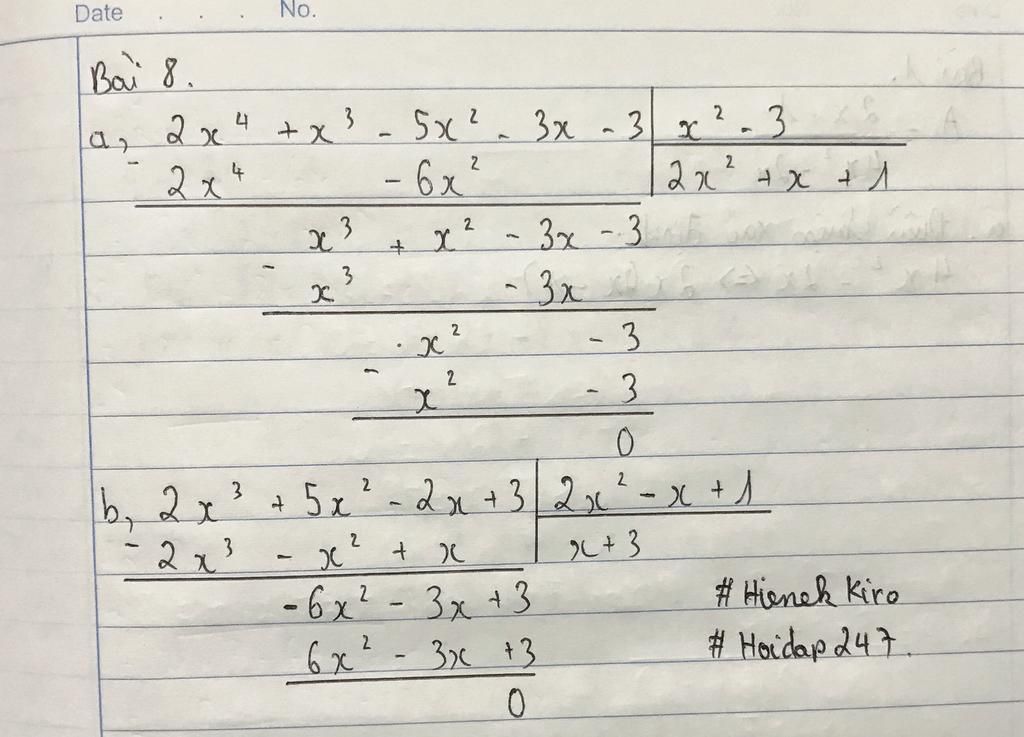 Date . . . No.
Bài 8.
a, 2x⁴ + x³ - 5x² - 3x - 3 | x² - 3
- 2x⁴ - 6x² | 2x² + x + 1
x³ + x² - 3x - 3
- x³ - 3x
x² - 3
- x² - 3
0
b, 2x³ + 5x² - 2x + 3 | 2x² - x + 1
- 2x³ - x² + x | x + 3
- 6x² - 3x + 3
6x² - 3x + 3
0
# Hienek Kiro
# Hoidap247.